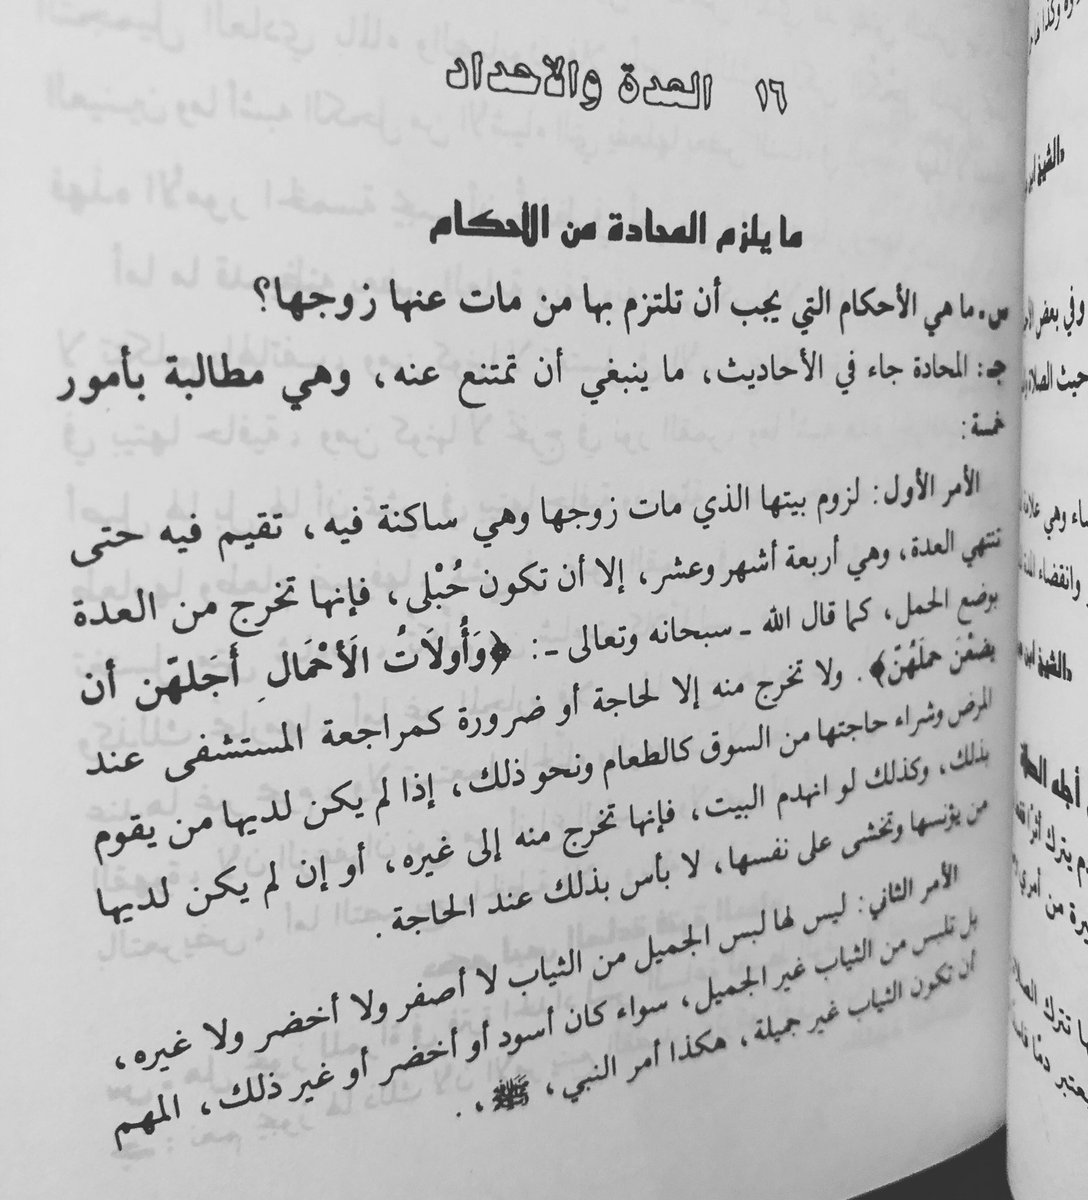 ١٦ العدة والاحداد
ما يلزم المحادة من الأحكام
س ـ ما هي الأحكام التي يجب أن تلتزم بها من مات عنها زوجها؟
جـ: المحادة جاء في الأحاديث، ما ينبغي أن تمتنع عنه، وهي مطالبة بأمور
خمسة:
الأمر الأول: لزوم بيتها الذي مات زوجها وهي ساكنة فيه، تقيم فيه حتى
تنتهي العدة، وهي أربعة أشهر وعشر، إلا أن تكون حُبْلى، فإنها تخرج من العدة
بوضع الحمل، كما قال الله ـ سبحانه وتعالى ـ: ﴿وَأُولَاتُ الَأحْمَالِ أَجَلهّن أن
يضعْنَ حملَهُنّ﴾. ولا تخرج منه إلا لحاجة أو ضرورة كمراجعة المستشفى عند
المرض وشراء حاجتها من السوق كالطعام ونحو ذلك، إذا لم يكن لديها من يقوم
بذلك، وكذلك لو انهدم البيت، فإنها تخرج منه إلى غيره، أو إن لم يكن لديها
من يؤنسها وتخشى على نفسها، لا بأس بذلك عند الحاجة.
الأمر الثاني: ليس لها لبس الجميل من الثياب لا أصفر ولا أخضر ولا غيره،
بل تلبس من الثياب غير الجميل، سواء كان أسود أو أخضر أو غير ذلك، المهم
أن تكون الثياب غير جميلة، هكذا أمر النبي، ﷺ، .
«الشيخ ابن
وفي بعض
حيث الصلاة
وهي
وانقضاء
«الشيخ ابن
أجله
يترك
من
تترك